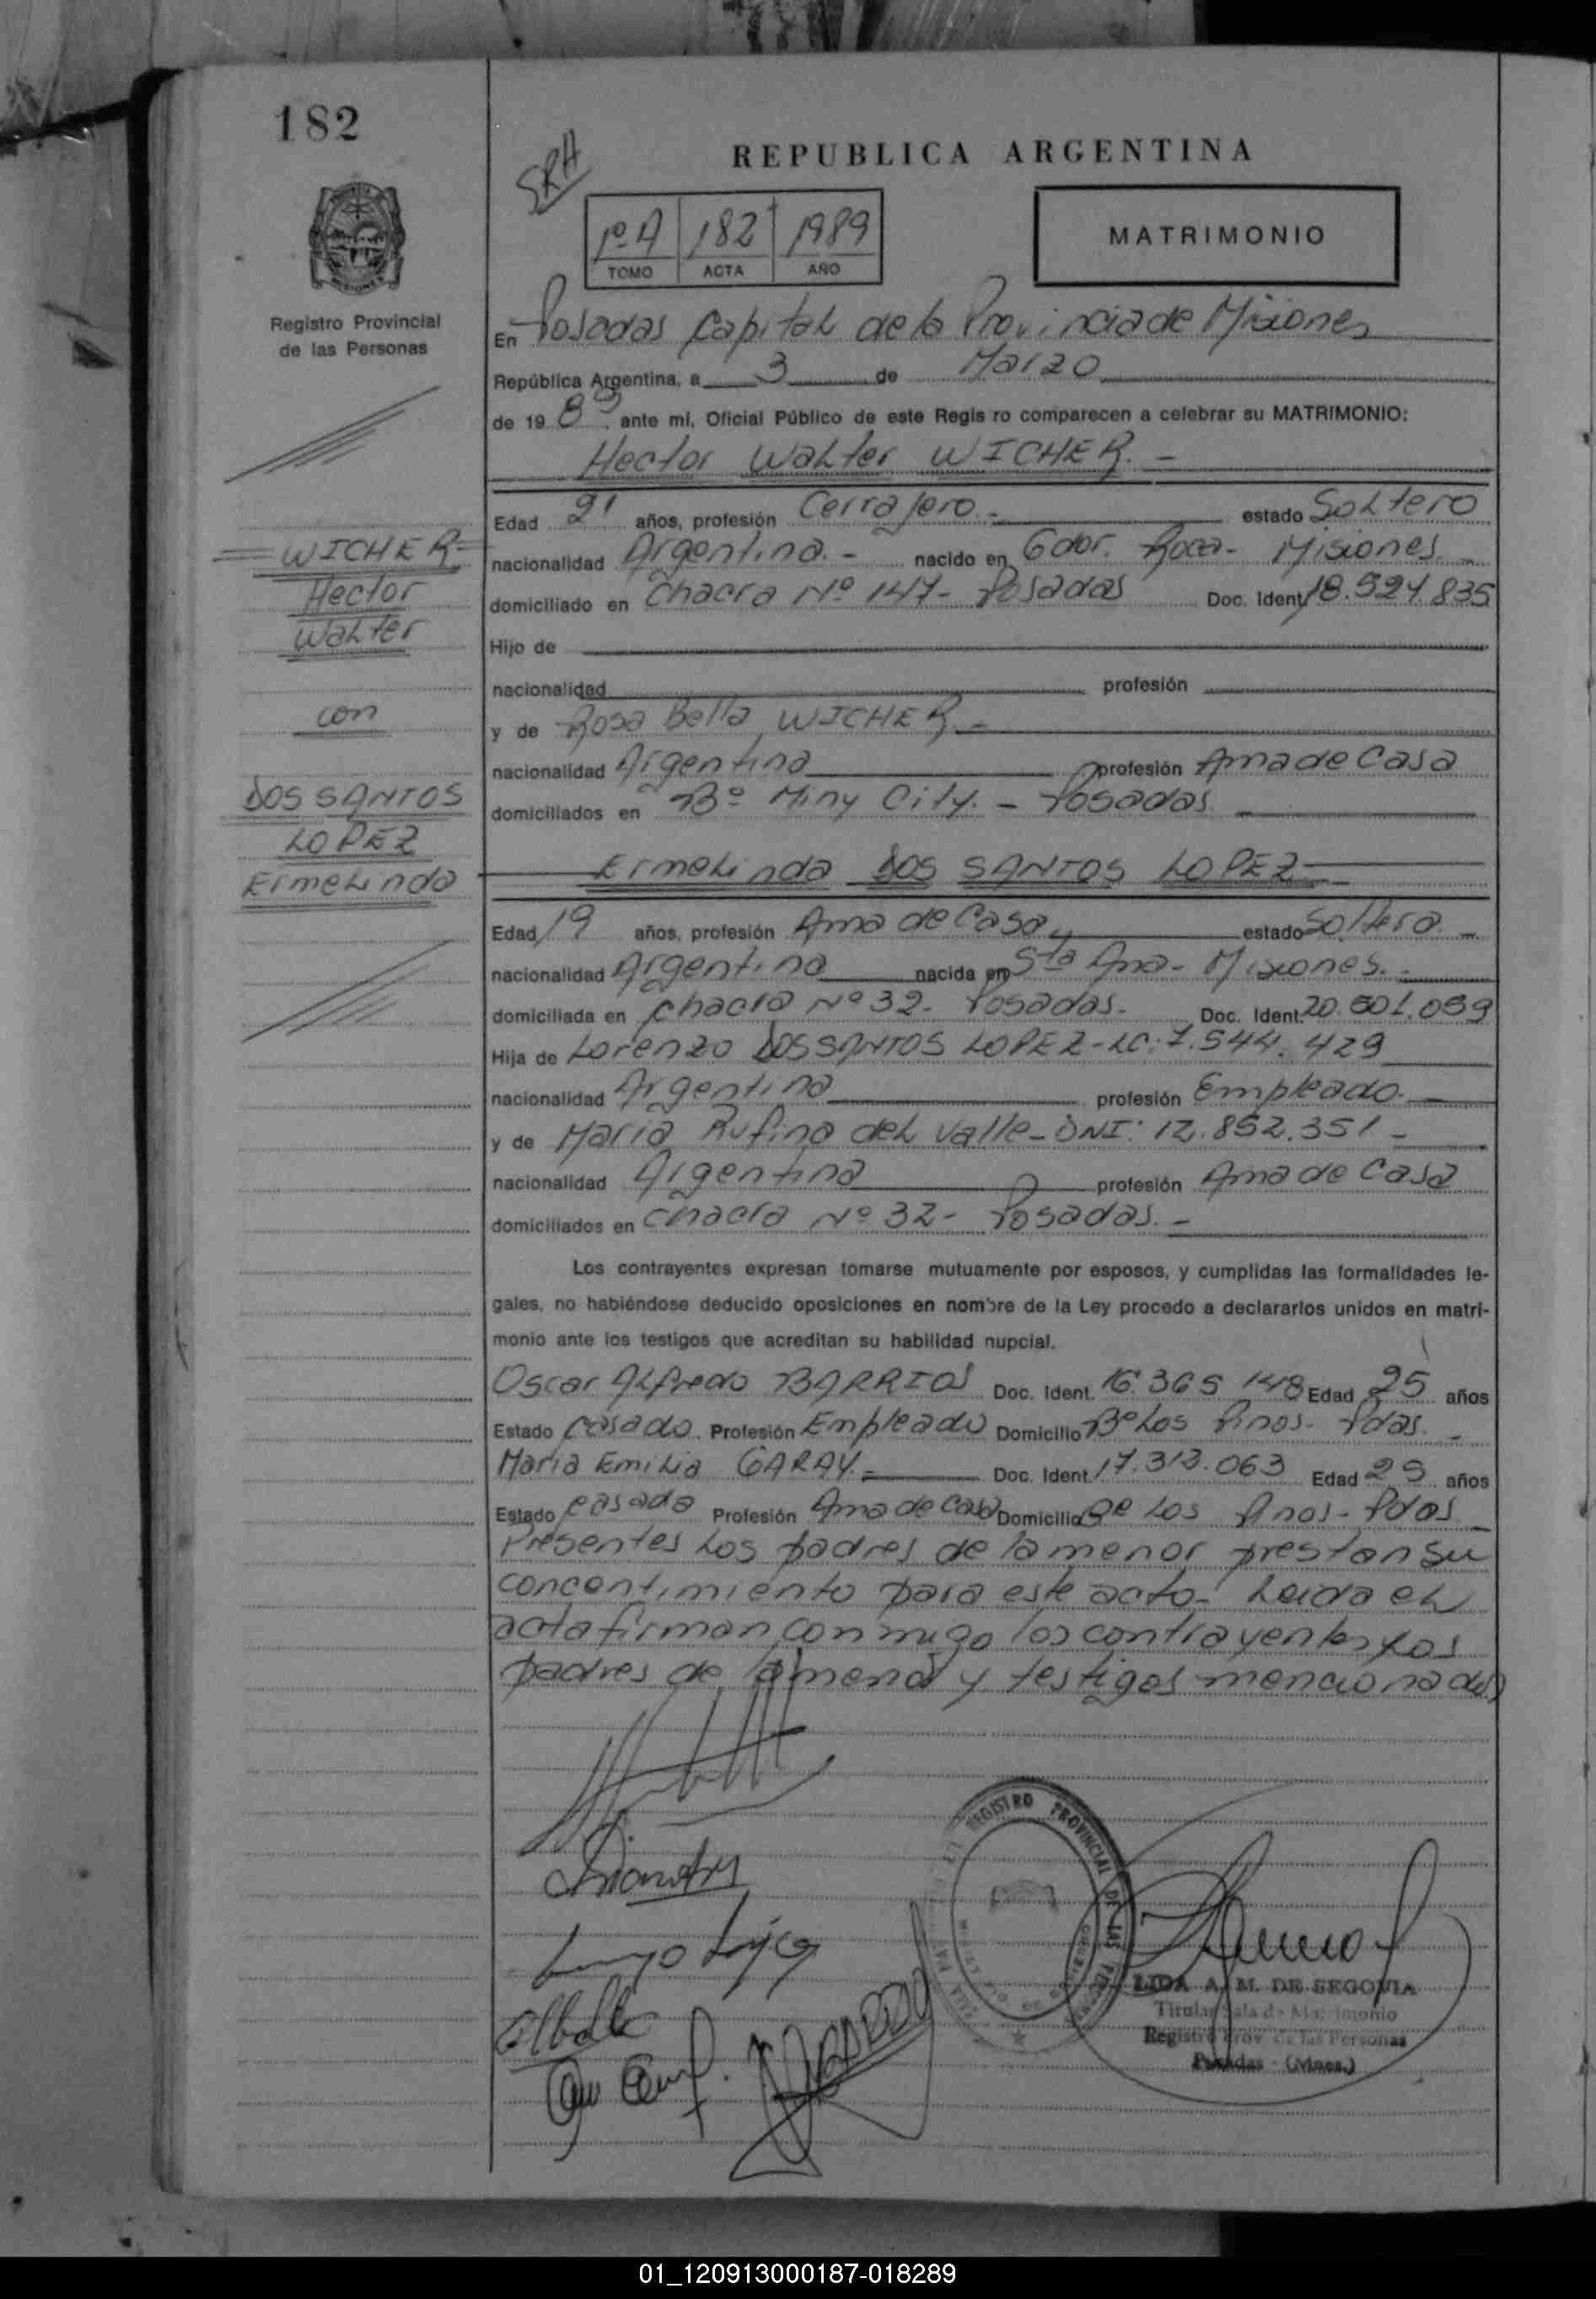 182
REPUBLICA ARGENTINA
SRA
1º A 182 1989
TOMO ACTA AÑO
MATRIMONIO
Registro Provincial
de las Personas
En Posadas Capital de la Provincia de Misiones
República Argentina, a 3 de Marzo
de 19 89, ante mi, Oficial Público de este Regis ro comparecen a celebrar su MATRIMONIO:
Hector Walter WICHER. -
Edad 21 años, profesión Cerrajero. - estado Soltero
WICHER
Hector
Walter
con
DOS SANTOS
LOPEZ
Ermelinda
nacionalidad Argentina. - nacido en Gdor. Roca - Misiones. -
domiciliado en Chacra Nº 147 - Posadas Doc. Ident. 18.524.835
Hijo de
nacionalidad profesión
y de Rosa Bella WICHER. -
nacionalidad Argentina profesión Ama de Casa
domiciliados en Bº Miny City. - Posadas
Ermelinda DOS SANTOS LOPEZ
Edad 19 años, profesión Ama de Casa estado Soltera -
nacionalidad Argentina nacida en Sta Ana - Misiones. -
domiciliada en Chacra Nº 32 - Posadas. - Doc. Ident. 20.501.059
Hija de Lorenzo DOS SANTOS LOPEZ - LC: 7.544.429
nacionalidad Argentina profesión Empleado. -
y de Maria Rufina del Valle - DNI: 12.852.351 -
nacionalidad Argentina profesión Ama de Casa
domiciliados en Chacra Nº 32 - Posadas. -
Los contrayentes expresan tomarse mutuamente por esposos, y cumplidas las formalidades le-
gales, no habiéndose deducido oposiciones en nombre de la Ley procedo a declararlos unidos en matri-
monio ante los testigos que acreditan su habilidad nupcial.
Oscar Alfredo BARRIOS Doc. Ident. 16.365.148 Edad 25 años
Estado Casado. Profesión Empleado Domicilio Bº Los Pinos - Pdas. -
Maria Emilia GARAY. - Doc. Ident. 17.312.063 Edad 25 años
Estado casada Profesión Ama de Casa Domicilio Bº Los Pinos - Pdas. -
Presentes los padres de la menor prestan su
concentimiento para este acto - Leida el
acta firman conmigo los contrayentes los
padres de la menor y testigos mencionados
REGISTRO PROVINCIAL DE LAS PERSONAS
LIDA A. M. DE SEGOVIA
Titular Sala de Matrimonio
Registro Prov. de las Personas
Posadas - (Mnes.)
01_120913000187-018289